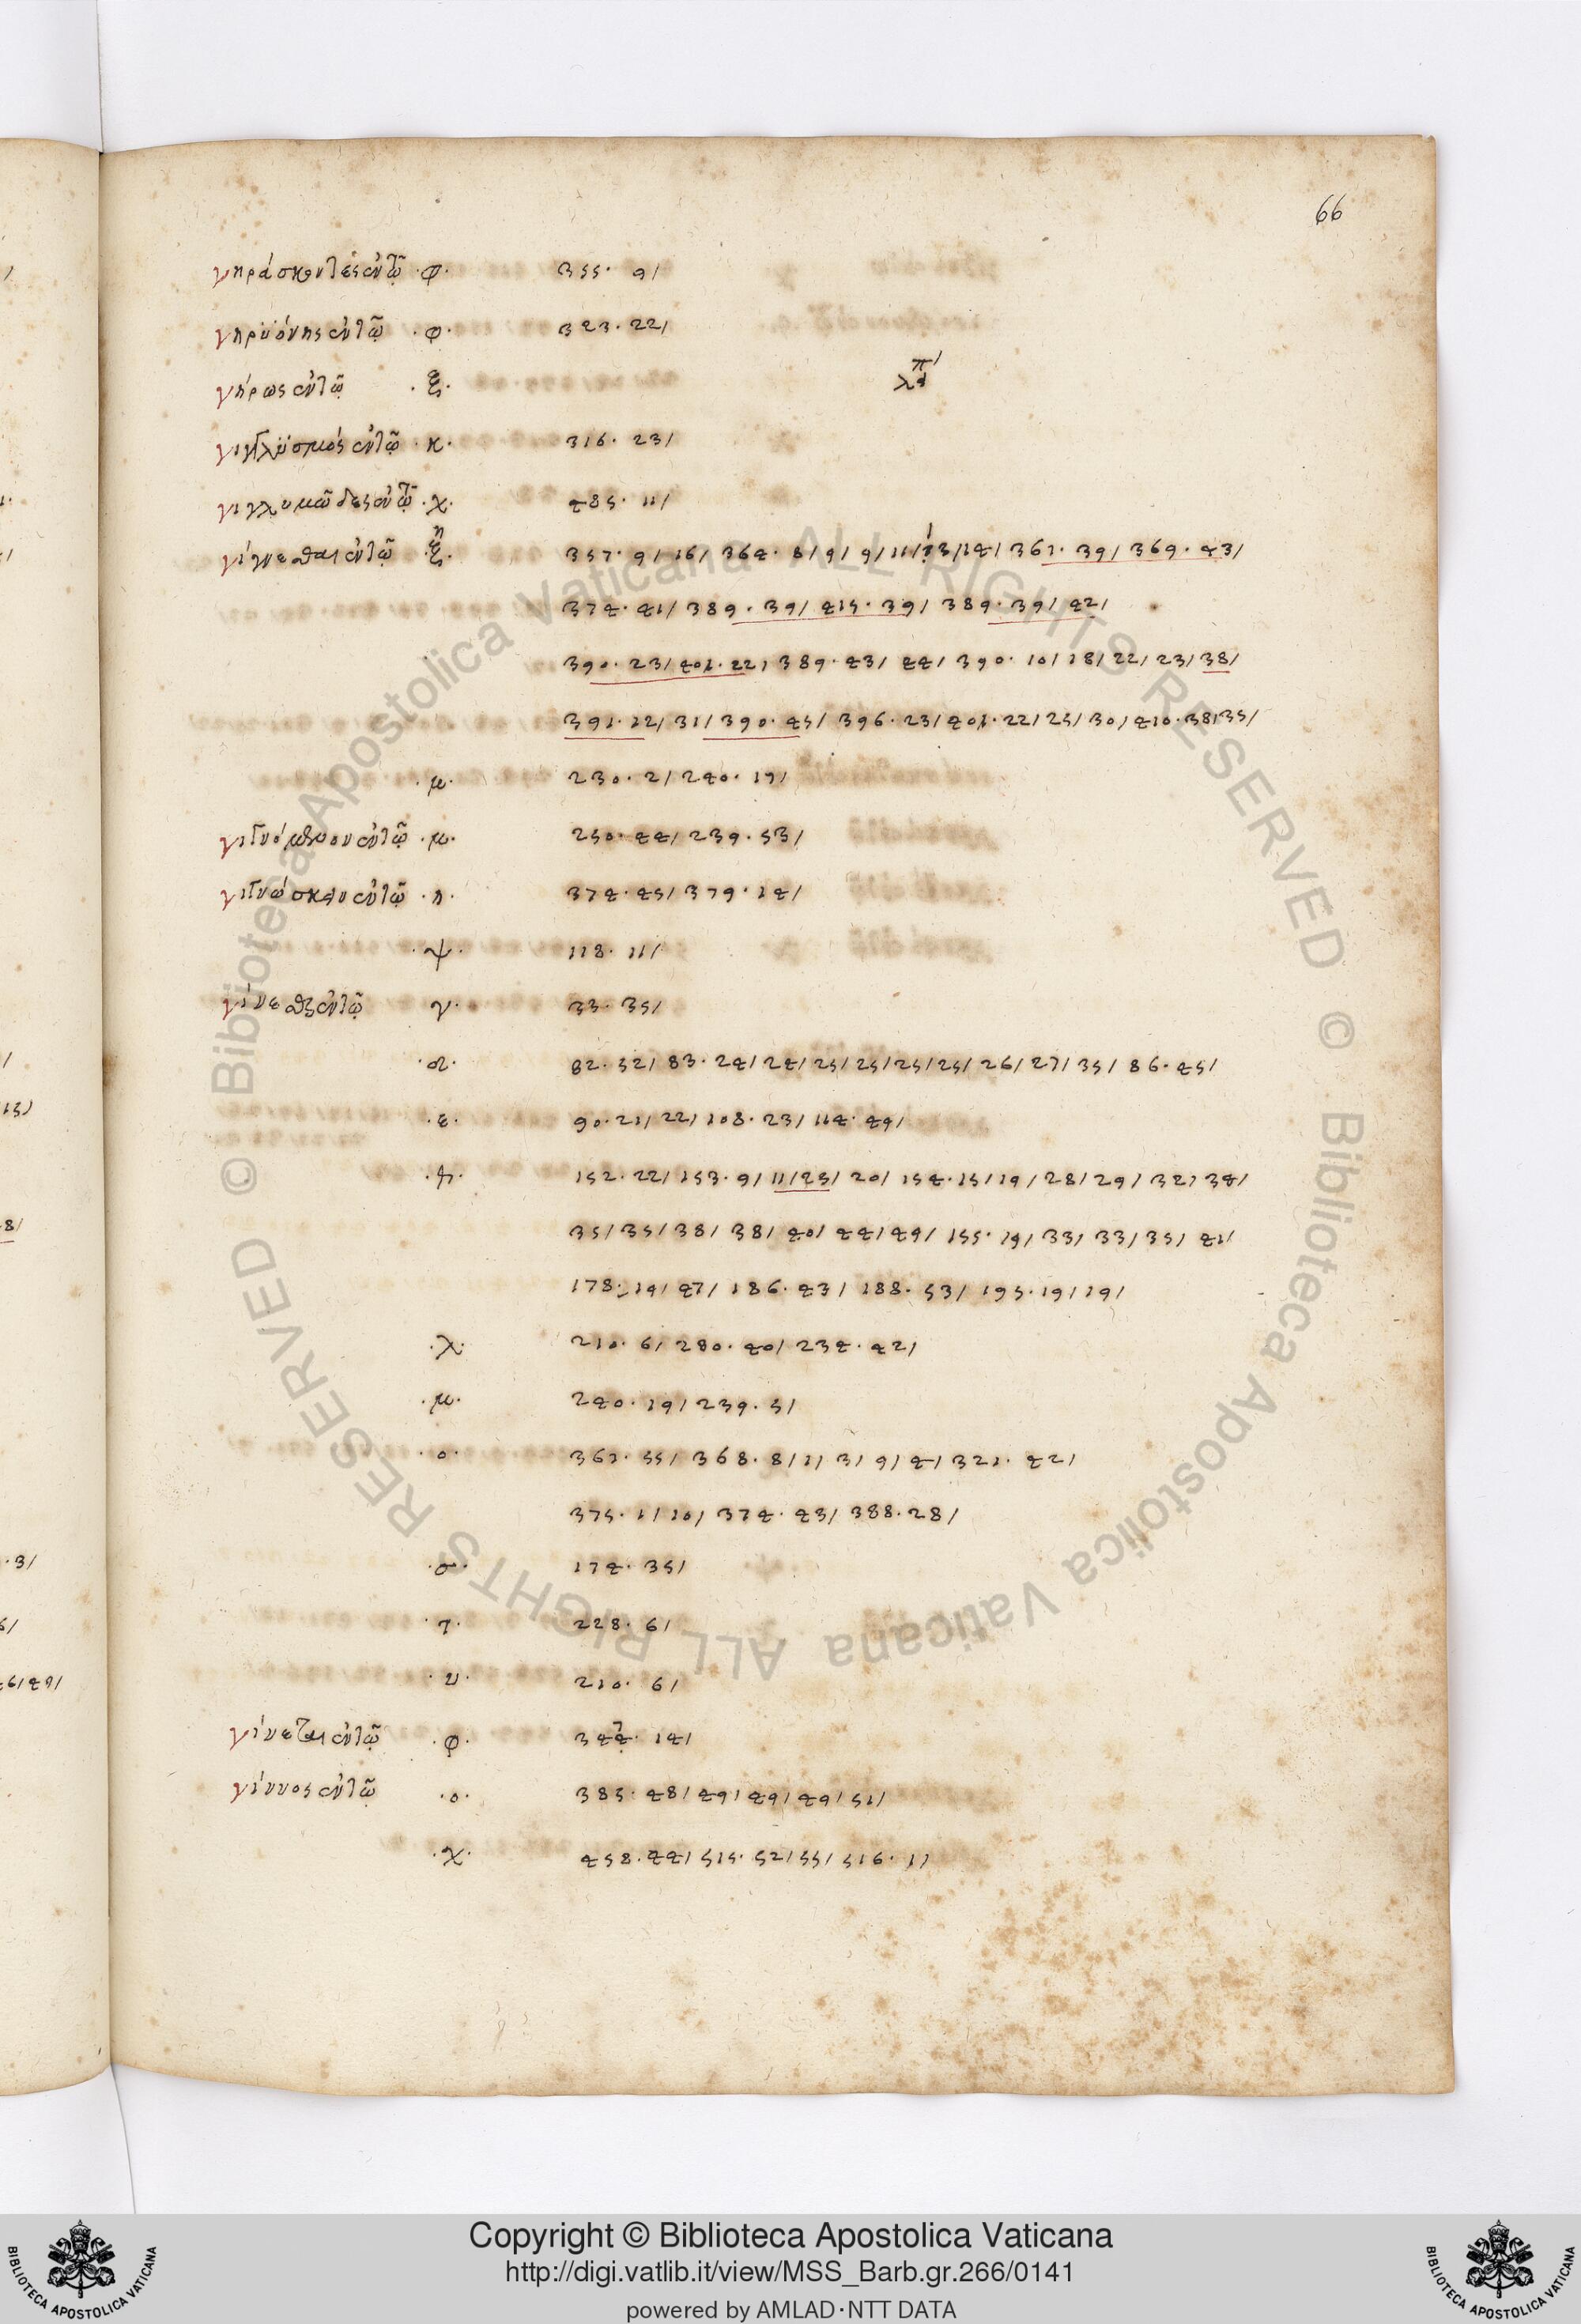 66
γηράσκοντες ἐν τῷ ·φ· 355· 9/
γηρυόνης ἐν τῷ ·φ· 323· 22/
γήρως ἐν τῷ ·ξ·
316· 23/
ἐν τῷ ·χ· 485· 11/
γίγνεσθαι ἐν τῷ 357· 9/ 16/ 364· 8/ 9/ 9/ 11/ 14/ 367· 39/ 369· 43/
374· 41/ 389· 39/ 415· 39/ 389· 39/ 42/
390· 23/ 401· 22/ 389· 43/ 44/ 390· 10/ 18/ 22/ 23/ 38/
391· 12/ 31/ 390· 45/ 396· 23/ 401· 22/ 25/ 30/ 410· 38/ 35/
·μ· 230· 2/ 240· 19/
γιγνόμενον ἐν τῷ ·μ· 250· 44/ 239· 53/
γιγνώσκειν ἐν τῷ ·η· 374· 45/ 379· 14/
·ψ· 118· 11/
γίνεσθαι ἐν τῷ γ· 33· 35/
·δ· 82· 52/ 83· 24/ 24/ 25/ 25/ 25/ 25/ 26/ 27/ 35/ 86· 45/
·ε· 90· 21/ 22/ 108· 23/ 114· 49/
152· 22/ 153· 9/ 11/ 25/ 20/ 154· 15/ 19/ 28/ 29/ 32/ 34/
35/ 35/ 38/ 38/ 40/ 44/ 49/ 155· 19/ 33/ 33/ 35/ 41/
178· 19/ 47/ 186· 43/ 188· 53/ 195· 19/ 19/
·λ· 210· 6/ 280· 40/ 234· 42/
·μ· 240· 19/ 239· 5/
·ο· 361· 55/ 368· 8/ 1/ 3/ 9/ 4/ 321· 42/
375· 1/ 10/ 374· 43/ 388· 28/
·σ· 174· 35/
·τ· 228· 6/
·υ· 210· 6/
γίνεται ἐν τῷ ·φ· 14/
γίννος ἐν τῷ ·ο· 385· 48/ 49/ 49/ 49/ 51/
·χ· 458· 44/ 515· 52/ 55/ 516· 1/
© Biblioteca Apostolica Vaticana ALL RIGHTS RESERVED © Biblioteca Apostolica Vaticana ALL RIGHTS RESERVED
Copyright © Biblioteca Apostolica Vaticana
http://digi.vatlib.it/view/MSS_Barb.gr.266/0141
powered by AMLAD·NTT DATA
BIBLIOTECA APOSTOLICA VATICANA
BIBLIOTECA APOSTOLICA VATICANA